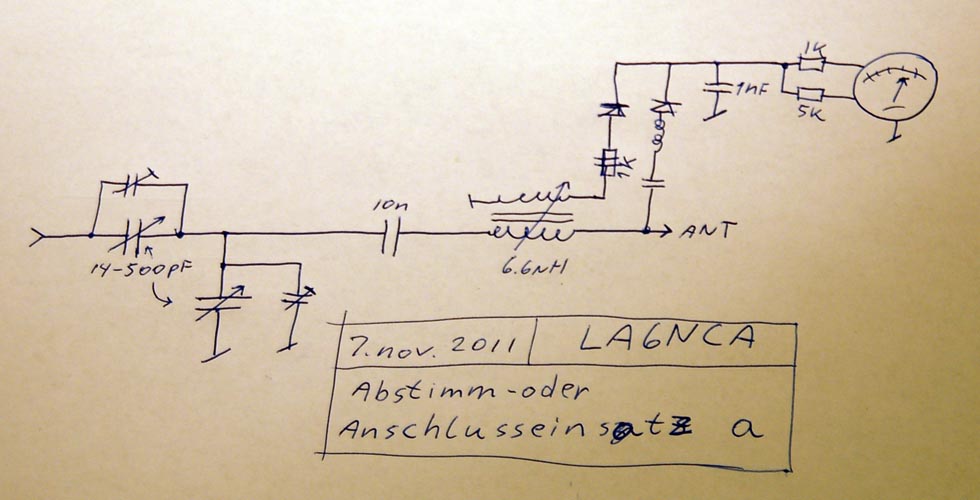 1K
1nF
5K
1K
10n
ANT
14-500pF
6.6nH
7. nov. 2011
LA6NCA
Abstimm-oder
Anschlusseinsatz a